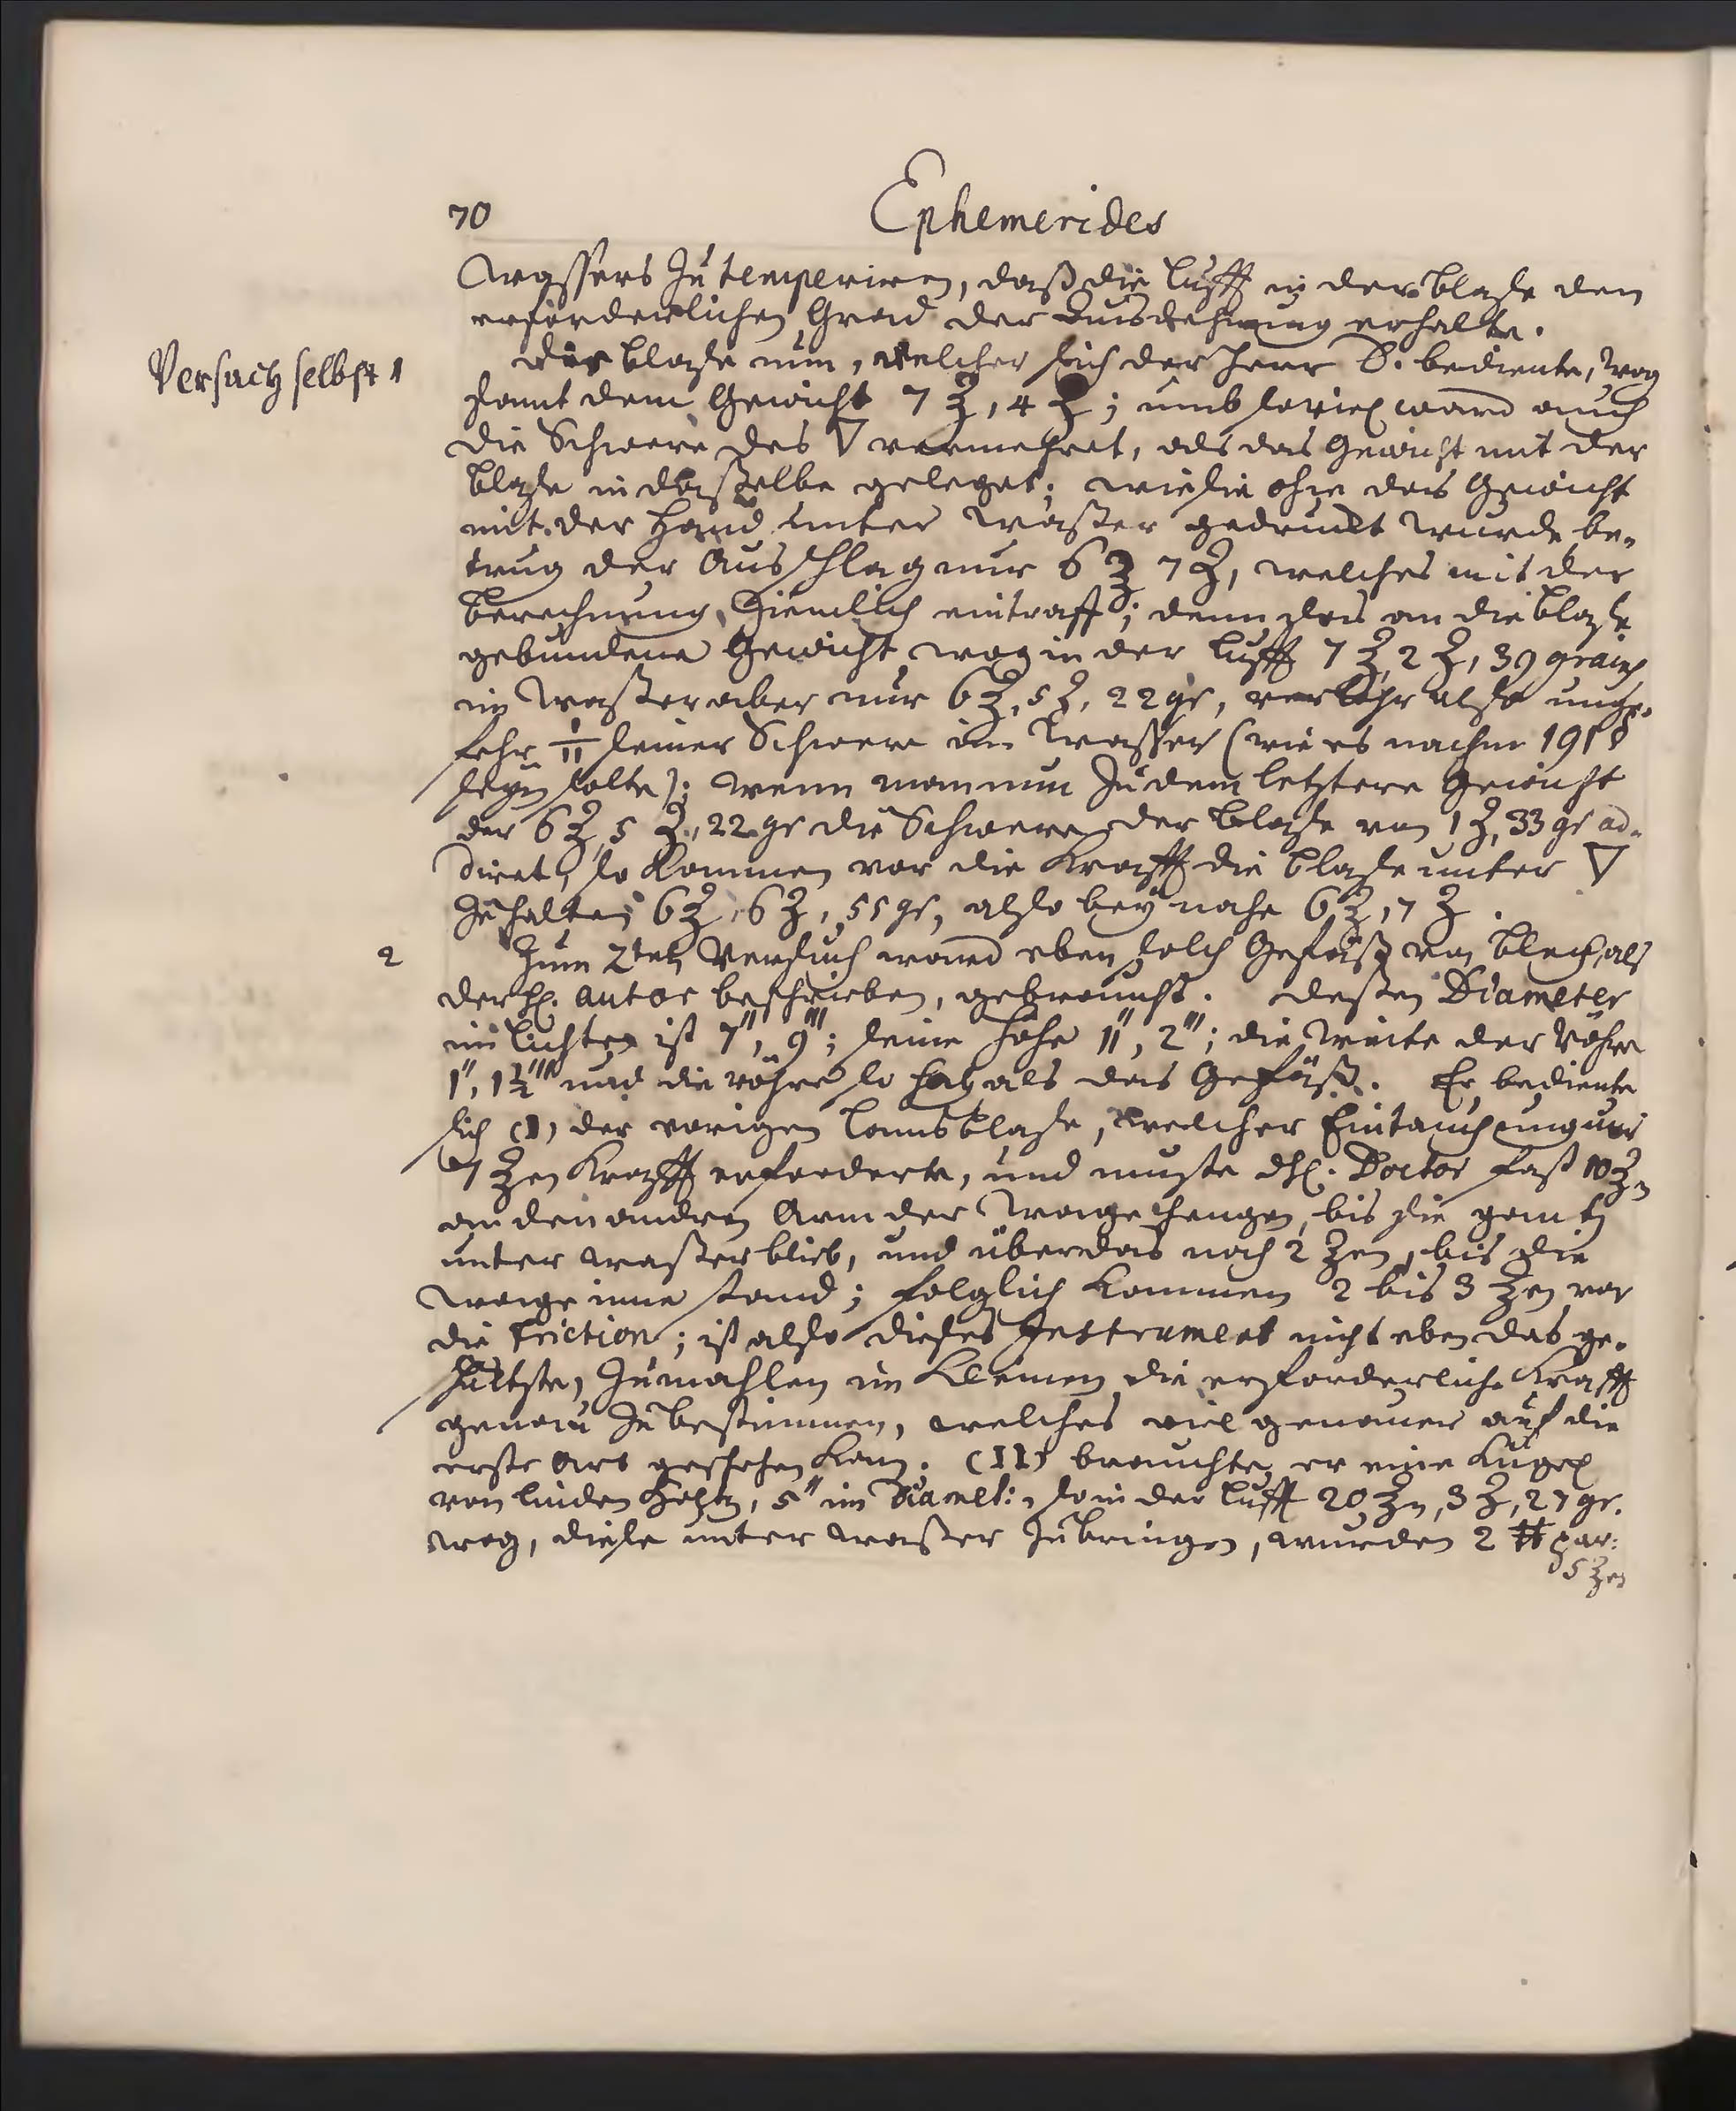 70 Ephemerides
Wassers zu temperiren, daß die Lufft in der Blase den
erforderlichen Grad der Ausdehnung erhalte.
Versuch selbst 1
Die Blase nun, welcher sich der Herr D. bediente, wog
samt dem Gewicht 7 ℥, 4 ʒ; umb soviel ward auch
die Schwere des ▽ vermehret, als das Gewicht mit der
Blase in daßelbe geleget; wie sie ohne das Gewicht
mit der Hand unter Waßer gedruckt wurde be-
trug der Ausschlag nur 6 ℥ 7 ʒ, welches mit der
Berechnung ziemlich eintraff; denn das an die Blase
gebundene Gewicht wog in der Lufft 7 ℥, 2 ʒ, 39 grain
im Waßer aber nur 6 ℥, 5 ʒ, 22 gr, verlohr also unge-
fehr 1/11 seiner Schwere im Wasser (wie es nach
seyn solte); wenn man nun zu dem letztern Gewicht
der 6 ℥, 5 ʒ, 22 gr die Schwere der Blase von 1 ʒ, 33 gr ad-
diret, so kommen vor die Krafft die Blase unter ▽
zu halten 6 ℥, 6 ʒ, 55 gr, also bey nahe 6 ℥, 7 ʒ.
2
Zum 2ten Versuch ward eben solch Gefäß von Blech, als
der H. autor beschrieben, gebraucht. deßen Diameter
im Lichten ist 7'', 9'''; seine Höhe 11'', 2'''; die Weite der Röhre
1'', 1½''' und die Röhre so hoch als das Gefäß. Er bediente
sich (I) der vorigen Blase, welcher Eintauchung nur
7 ℥en Krafft erforderte, und muste H. Doctor fast 10 ℥n
an den andren Arm der Wage hengen, bis sie gantz
unter Waßer blieb, und überdas noch 2 ℥en, bis die
Wage inne stand; folglich kommen 2 bis 3 ℥en vor
die Friction; ist also dieses Instrument nicht eben das ge-
schickste, zumahlen im Kleinen die erforderliche Krafft
genau zu bestimmen, welches viel genauer auf die
erste Art geschehen kan. (II) brauchte er eine Kugel
von Linden Holtz, 5'' im Diamet: so in der Lufft 20 ℥n, 3 ʒ, 27 gr.
wog, diese unter Waßer zu bringen, wurden 2 ℔ par:
5 ℥en